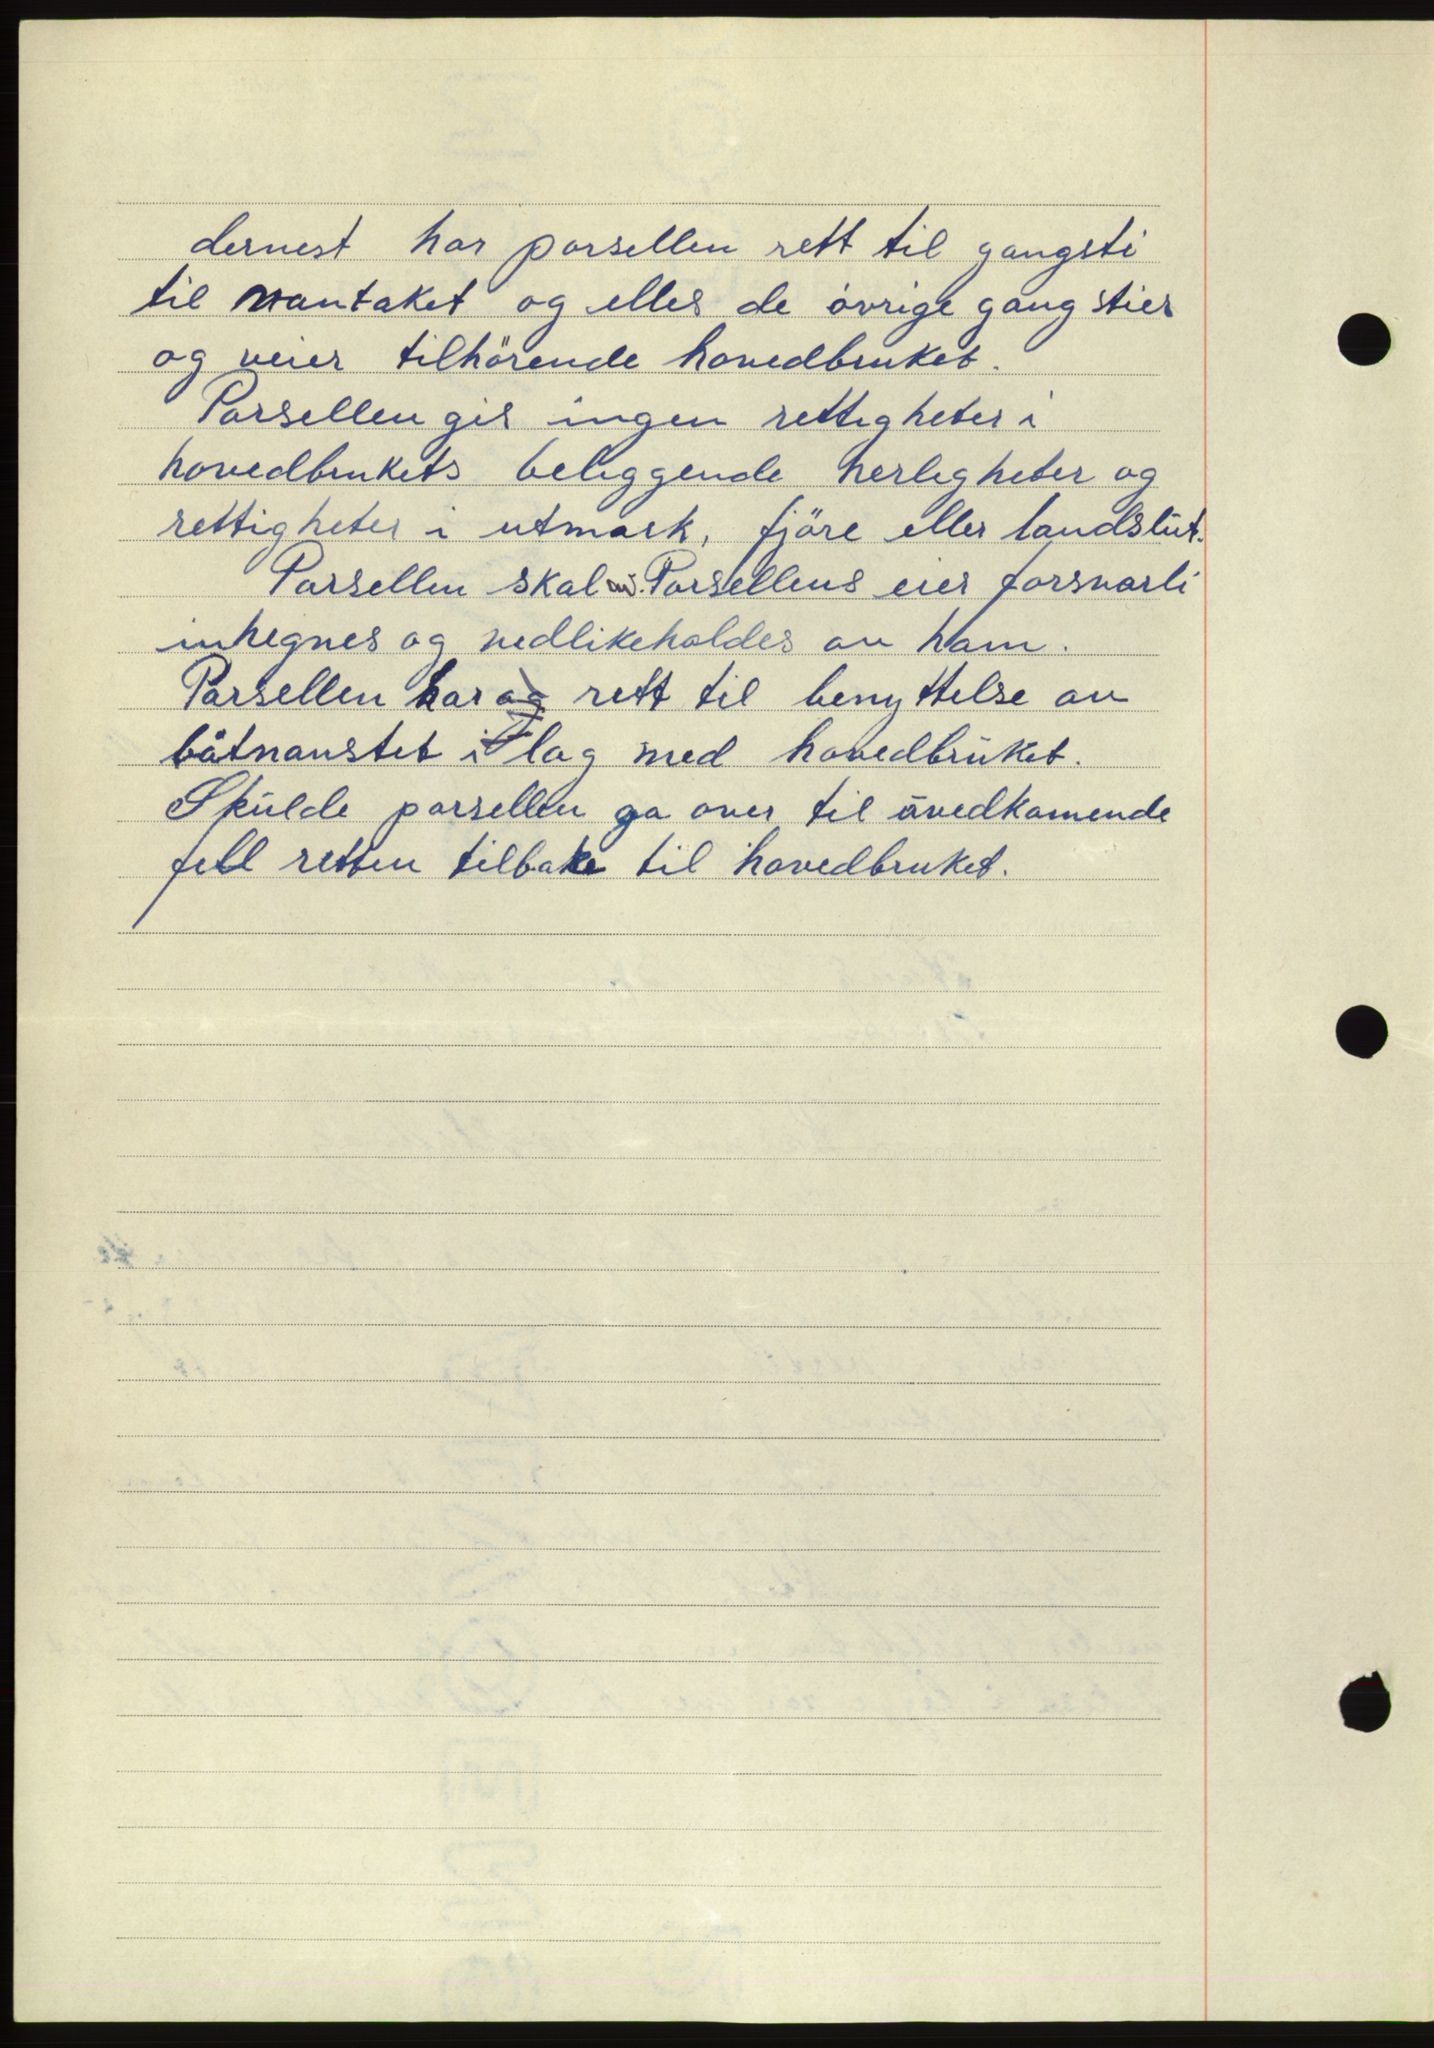 dernest har parsellen rett til gangsti
til vantaket og elles de övrige gang stier
og veier tilhörende hovedbruket.
Parsellen gis ingen rettigheter i
hovedbrukets beliggende herligheter og
rettigheter i utmark, fjöre eller landslut.
Parsellen skal av Parsellens eier forsvarli
inhegnes og vedlikeholdes av ham.
Parsellen har og rett til benyttelse av
båtnaustet i lag med hovedbruket.
Skulde parsellen ga over til uvedkomende
fell retten tilbake til hovedbruket.